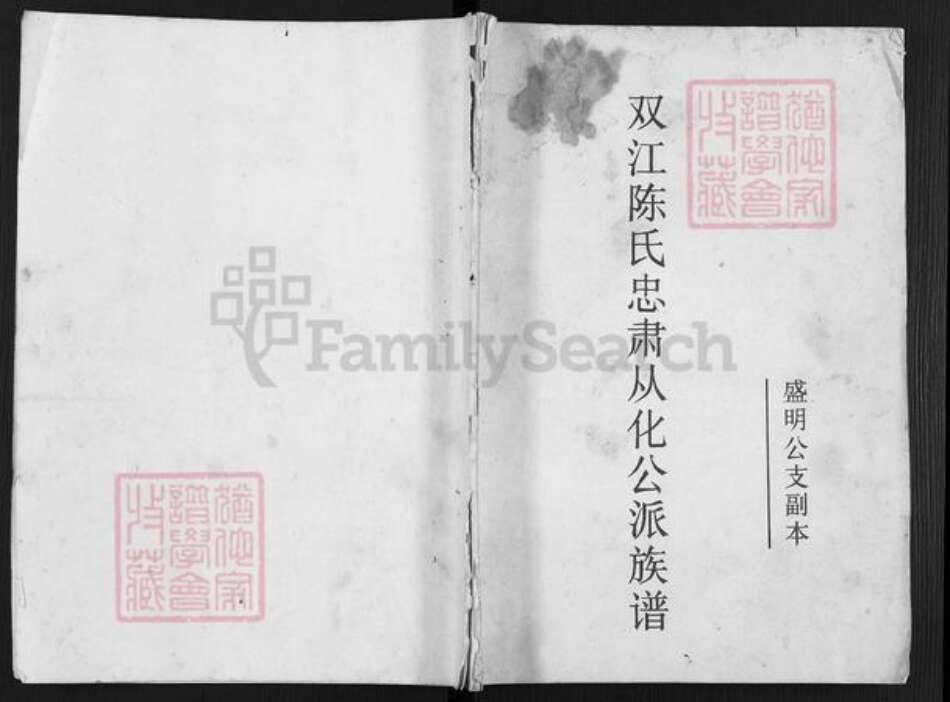 猶他家
譜學會
收藏
盛明公支副本
双江陈氏忠肃从化公派族谱
FamilySearch
猶他家
譜學會
收藏